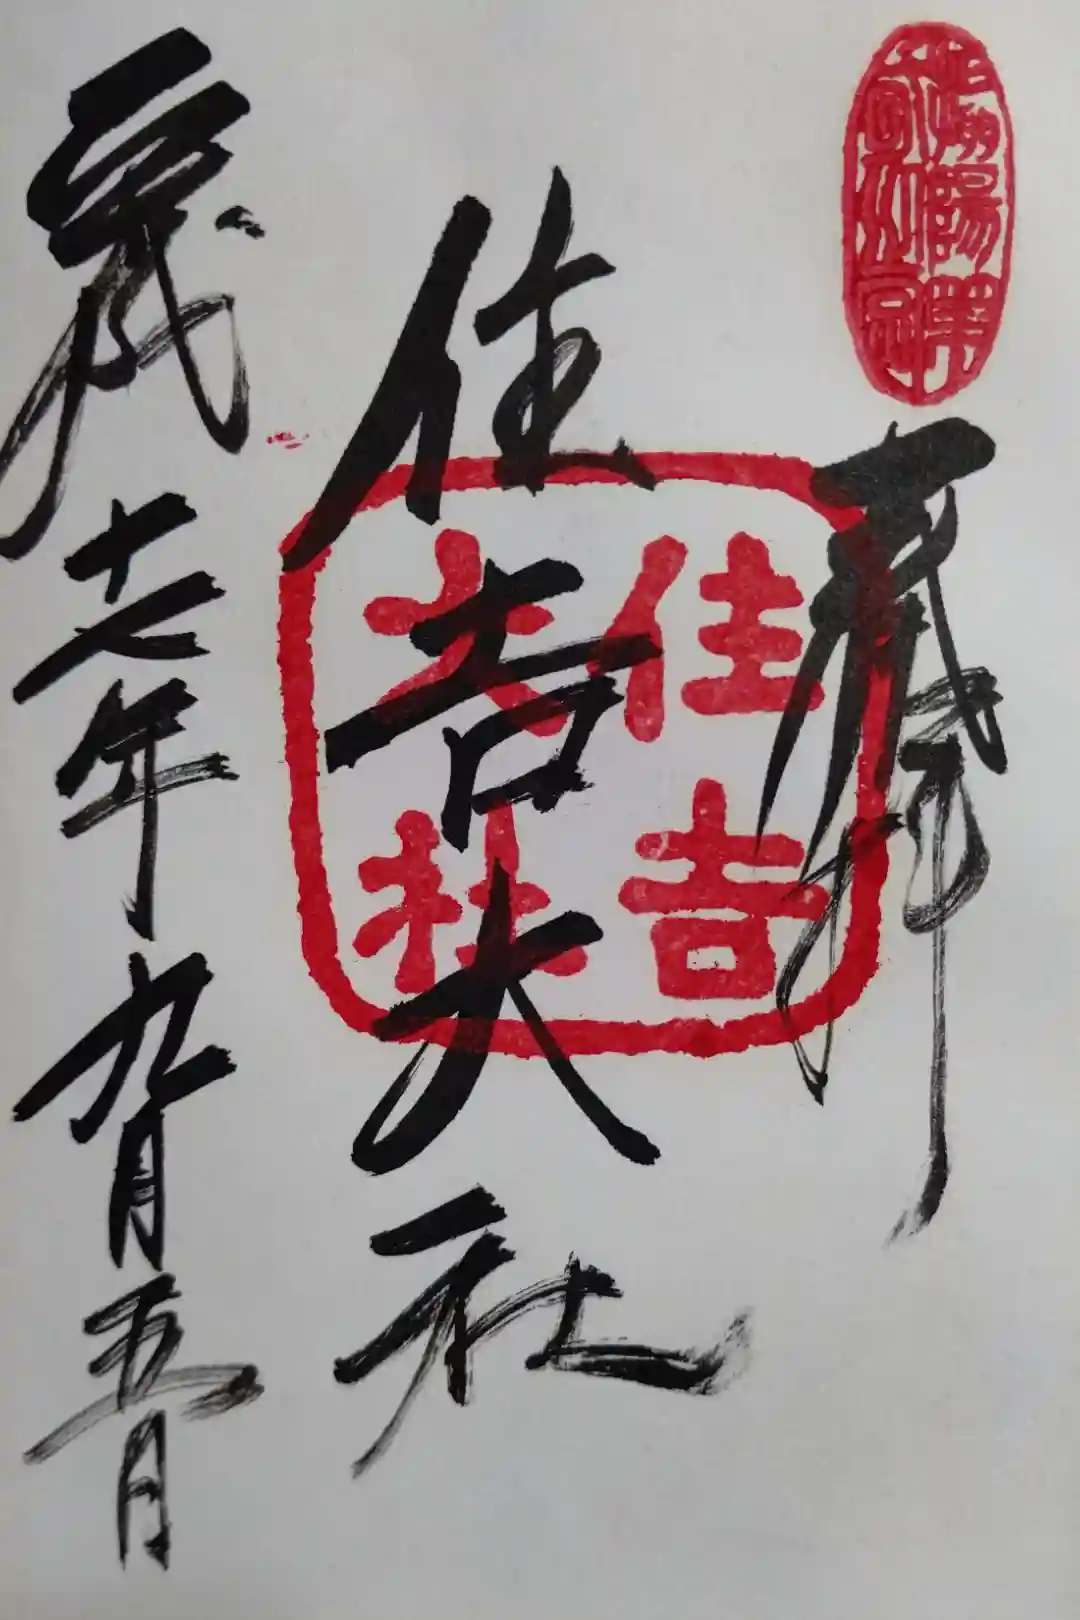 奉拝
住吉大社
住吉大社
平成十七年九月五日